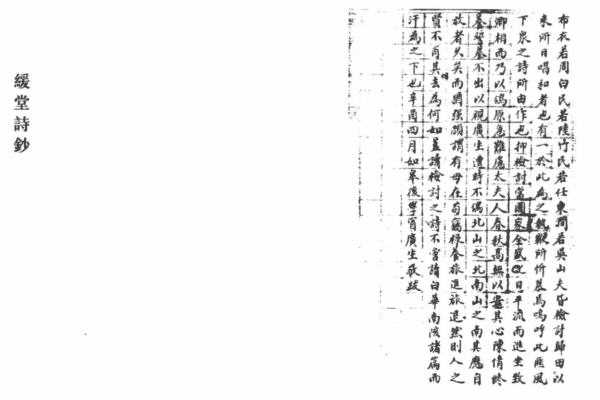 布衣若周白民若陸竹民若任東澗若吳山夫皆檢討歸田以
來所日唱和者也有一於此為之執鞭所忻慕焉嗚呼此匪風
下泉之詩所由作也抑檢討當國家全盛之日平流而進坐致
卿相而乃以鴒原急難慮太夫人春秋高無以安其心陳情終
養誓墓不出以視廣生遭時不偶北山之北南山之南其應自
放者久矣而猶強顏謂有母在苟竊祿養旅進旅退然則人之
賢不肖其去為何如蓋讀檢討之詩不啻誦白華南陔諸篇而
汗為之下也辛酉四月如皋後學冒廣生敬跋
緩堂詩鈔